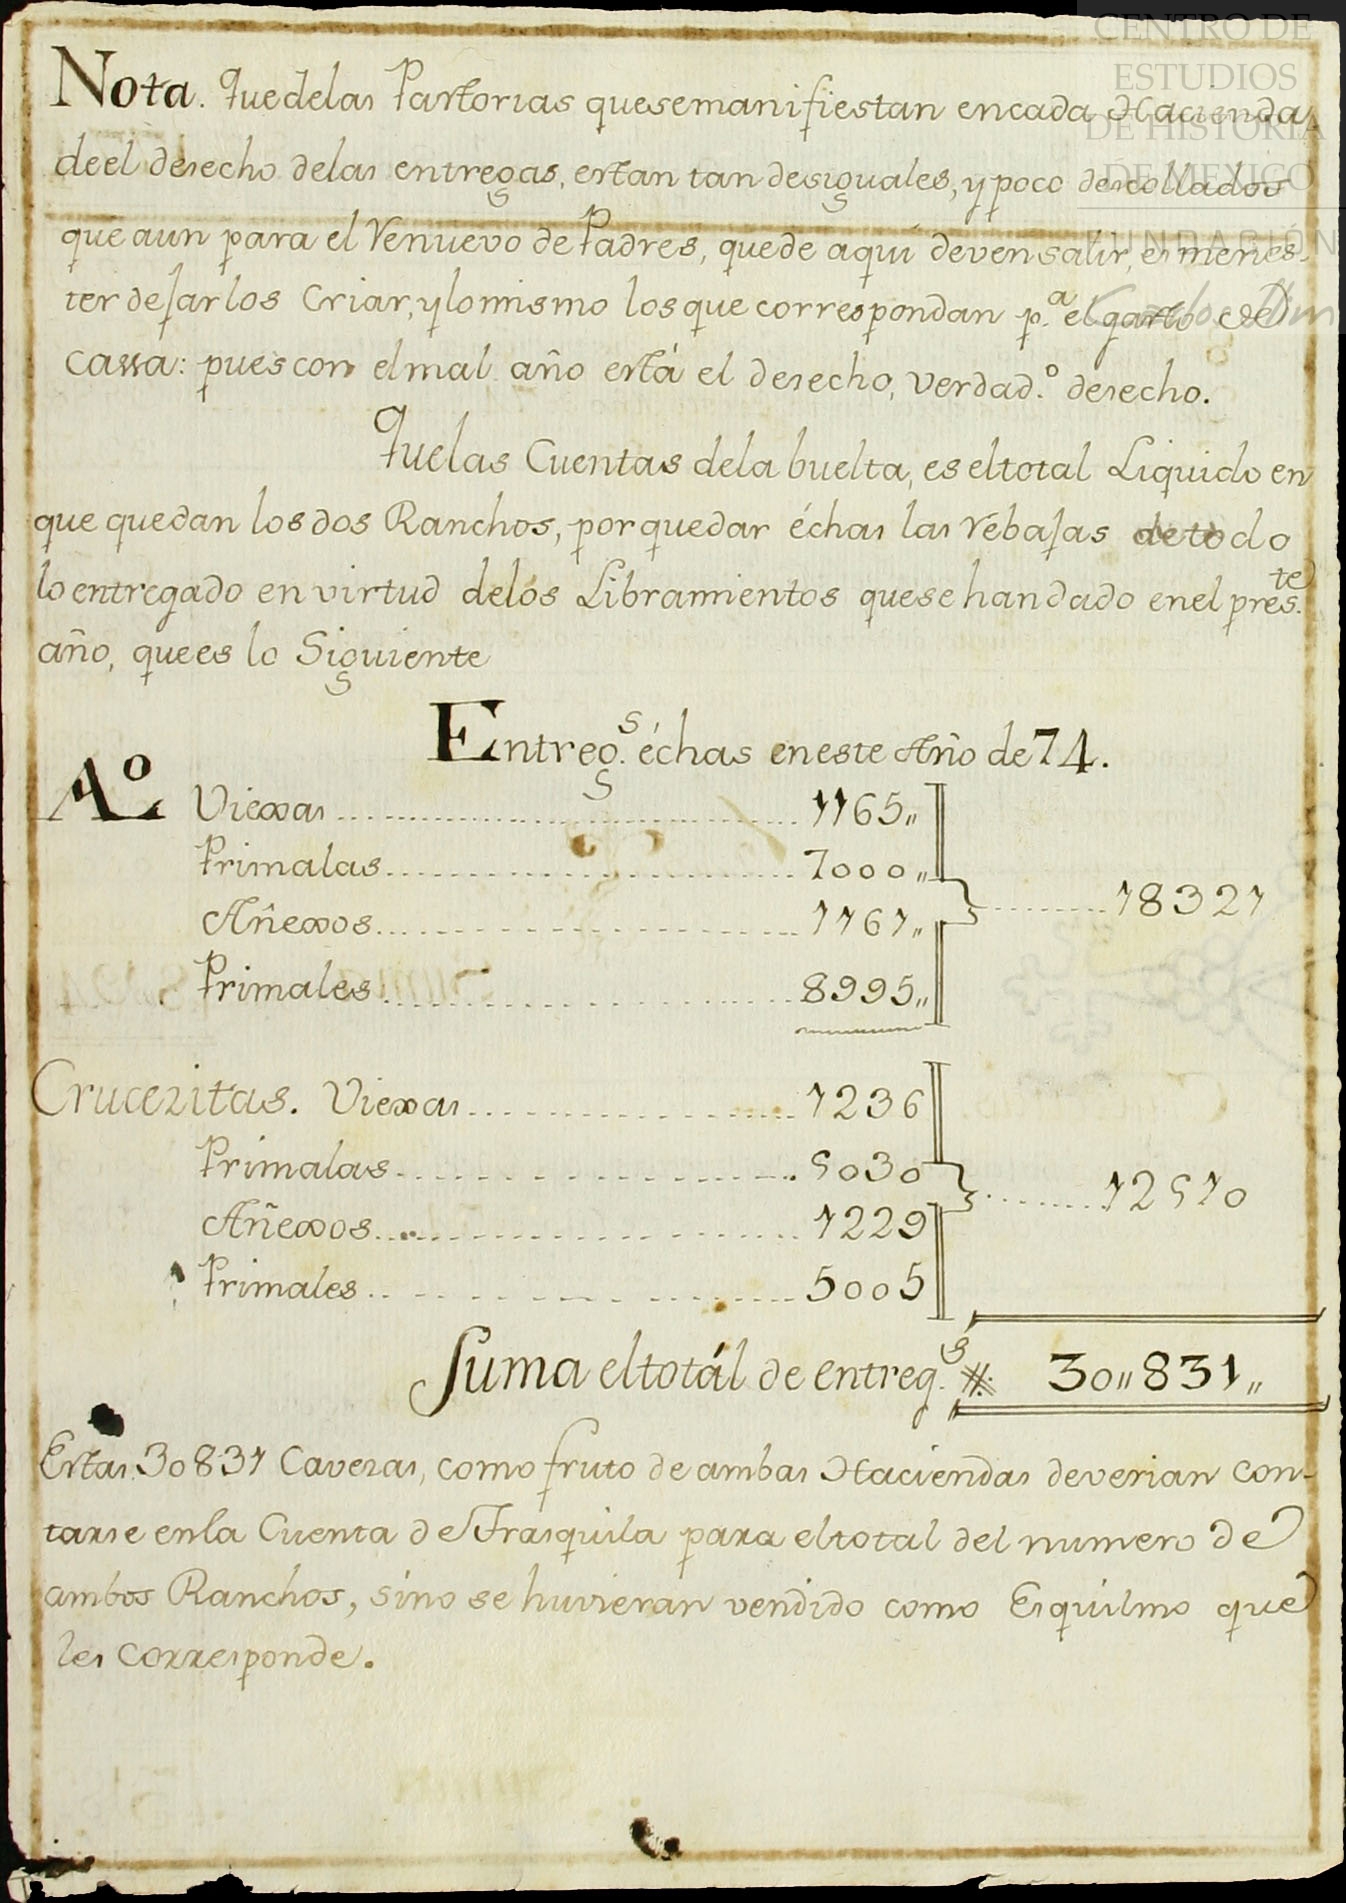 CENTRO DE
ESTUDIOS
DE HISTORIA
DE MEXICO
FUNDACIÓN
Nota. Que delas Pastorias quesemanifiestan encada Hacienda
deel desecho delas entregas, estan tan desiguales, y poco descollados
que aun para el Renuevo de Padres, quede aqui deven salir, es menes-
ter dejarlos Criar, ylomismo losque correspondan p.ª el gasto de
Cassa: pues con elmal año está el desecho, verdad.º desecho.
Quelas Cuentas dela buelta, es eltotal Liquido en
que quedan los dos Ranchos, por quedar échas las rebajas de todo
lo entregado en virtud delos Libramientos quese han dado enel pres.te
año, quees lo Siguiente
Entreg.s échas eneste Año de 74.
Aº Viexas 1165,,
Primalas 7000,,
Añexos 1161,, 18321
Primales 8995,,
Crucezitas. Viexas 1236
Primalas 5030
Añexos 1229 12510
Primales 5005
Suma eltotál de entreg.s # 30,,831,,
Estas 30831 Cavezas, como fruto de ambas Haciendas deverian con-
tarse enla Cuenta de Frasquila para eltotal del numero de
ambos Ranchos, sino se huvieran vendido como Esquilmo que
les corresponde.